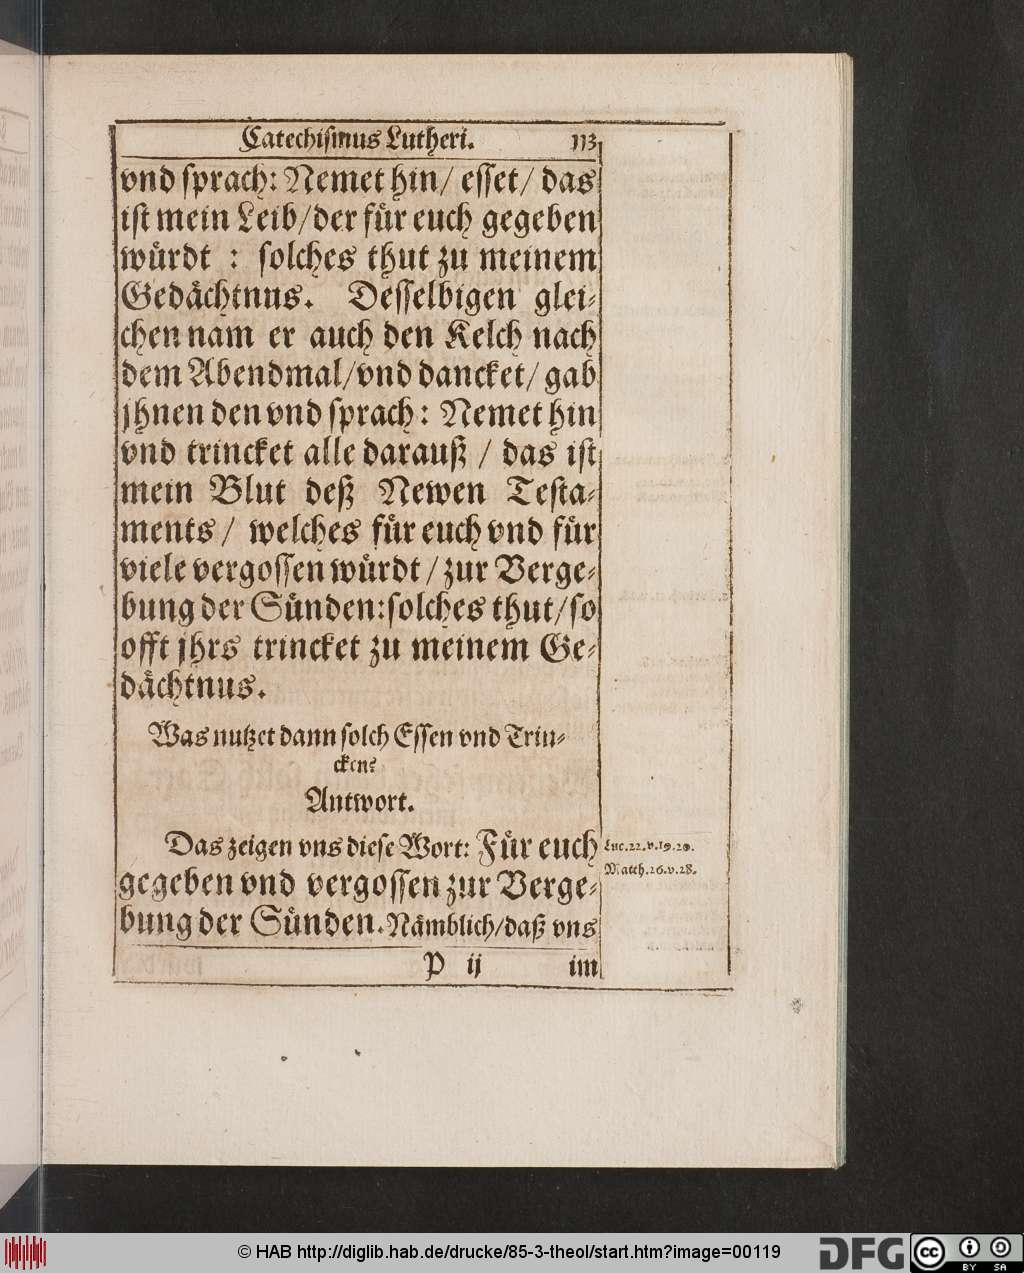 Catechismus Lutheri. 113
vnd sprach: Nemet hin/ esset/ das
ist mein Leib/der für euch gegeben
würdt : solches thut zu meinem
Gedächtnus. Desselbigen glei-
chen nam er auch den Kelch nach
dem Abendmal/vnd dancket/ gab
jhnen den vnd sprach: Nemet hin
vnd trincket alle darauß / das ist
mein Blut deß Newen Testa-
ments/ welches für euch vnd für
viele vergossen würdt/zur Verge-
bung der Sünden:solches thut/so
offt jhrs trincket zu meinem Ge-
dächtnus.
Was nutzet dann solch Essen vnd Trin-
cken?
Antwort.
Das zeigen vns diese Wort: Für euch
Luc.22.v.19.20.
Matth.26.v.28.
gegeben vnd vergossen zur Verge-
bung der Sünden. Nämblich/daß vns
P ij im
© HAB http://diglib.hab.de/drucke/85-3-theol/start.htm?image=00119
DFG
cc BY SA